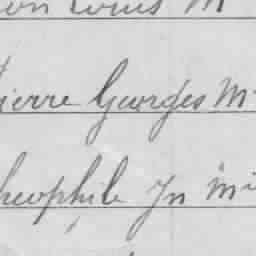 Louis M
ierre Georges M
heophile Jn